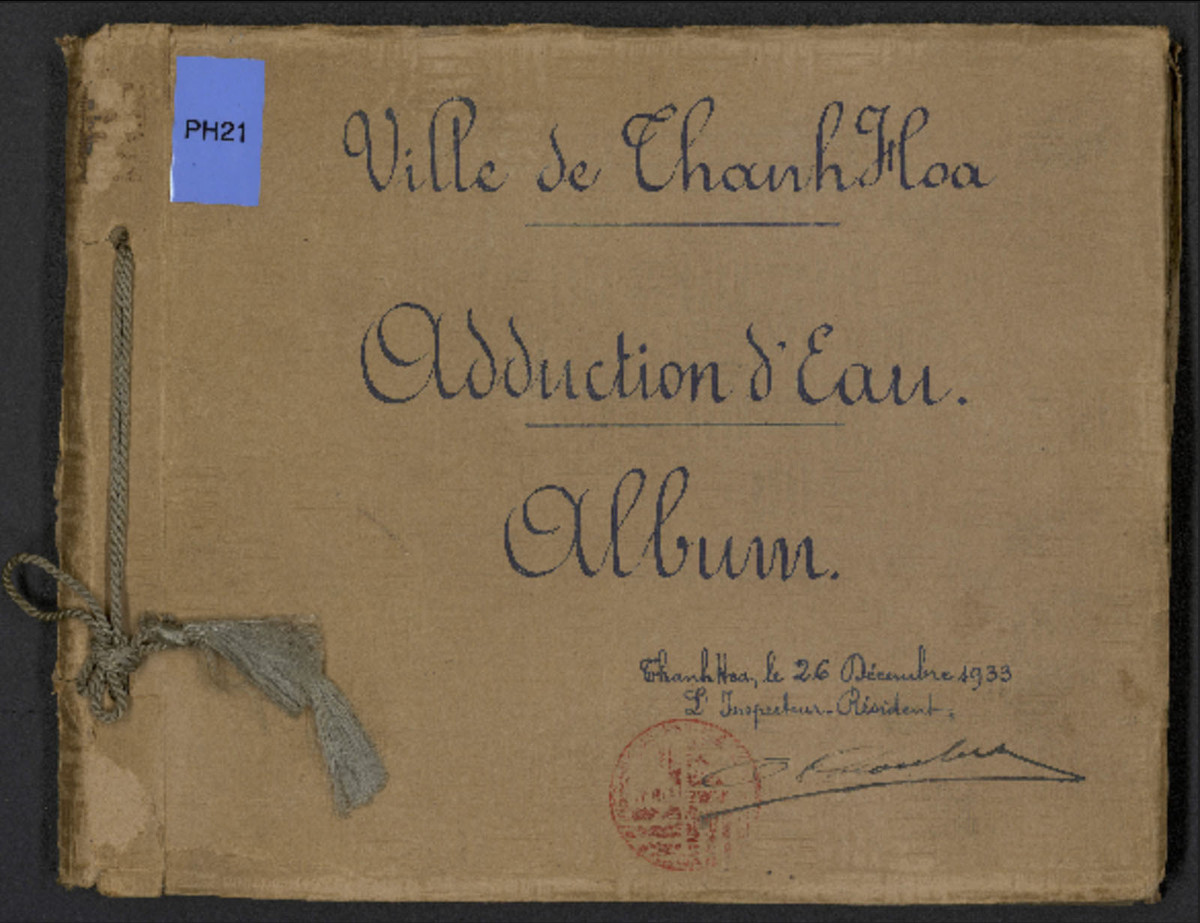 PH21
Ville de Thanh Hoa
Adduction d'Eau.
Album.
Thanh Hoa, le 26 Décembre 1933
L'Inspecteur-Résident,